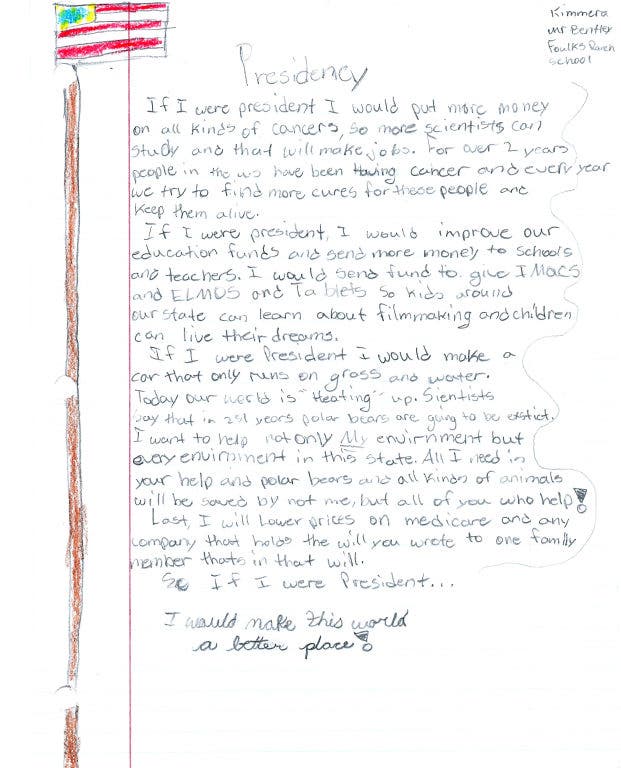 Kimmera
Mr Bentley
Foulks Ranch
School
Presidency
If I were president I would put more money
on all kinds of cancers, so more scientists can
study and that will make jobs. For over 2 years
people in the us have been Having cancer and every year
we try to find more cures for these people and
keep them alive.
If I were president, I would improve our
education funds and send more money to schools
and teachers. I would send fund to give IMACS
and ELMOS and Tablets so kids around
our state can learn about filmmaking and children
can live their dreams.
If I were President I would make a
car that only runs on grass and water.
Today our world is "Heating" up. Sientists
say that in 251 years polar bears are going to be exstict.
I want to help not only My enviirnment but
every enviirnment in this state. All I need is
your help and polar bears and all kinds of animals
will be saved by not me, but all of you who help!
Last, I will Lower prices on medicare and any
company that holds the will you wrote to one family
member thats in that will.
So If I were President...
I would make this world
a better place!